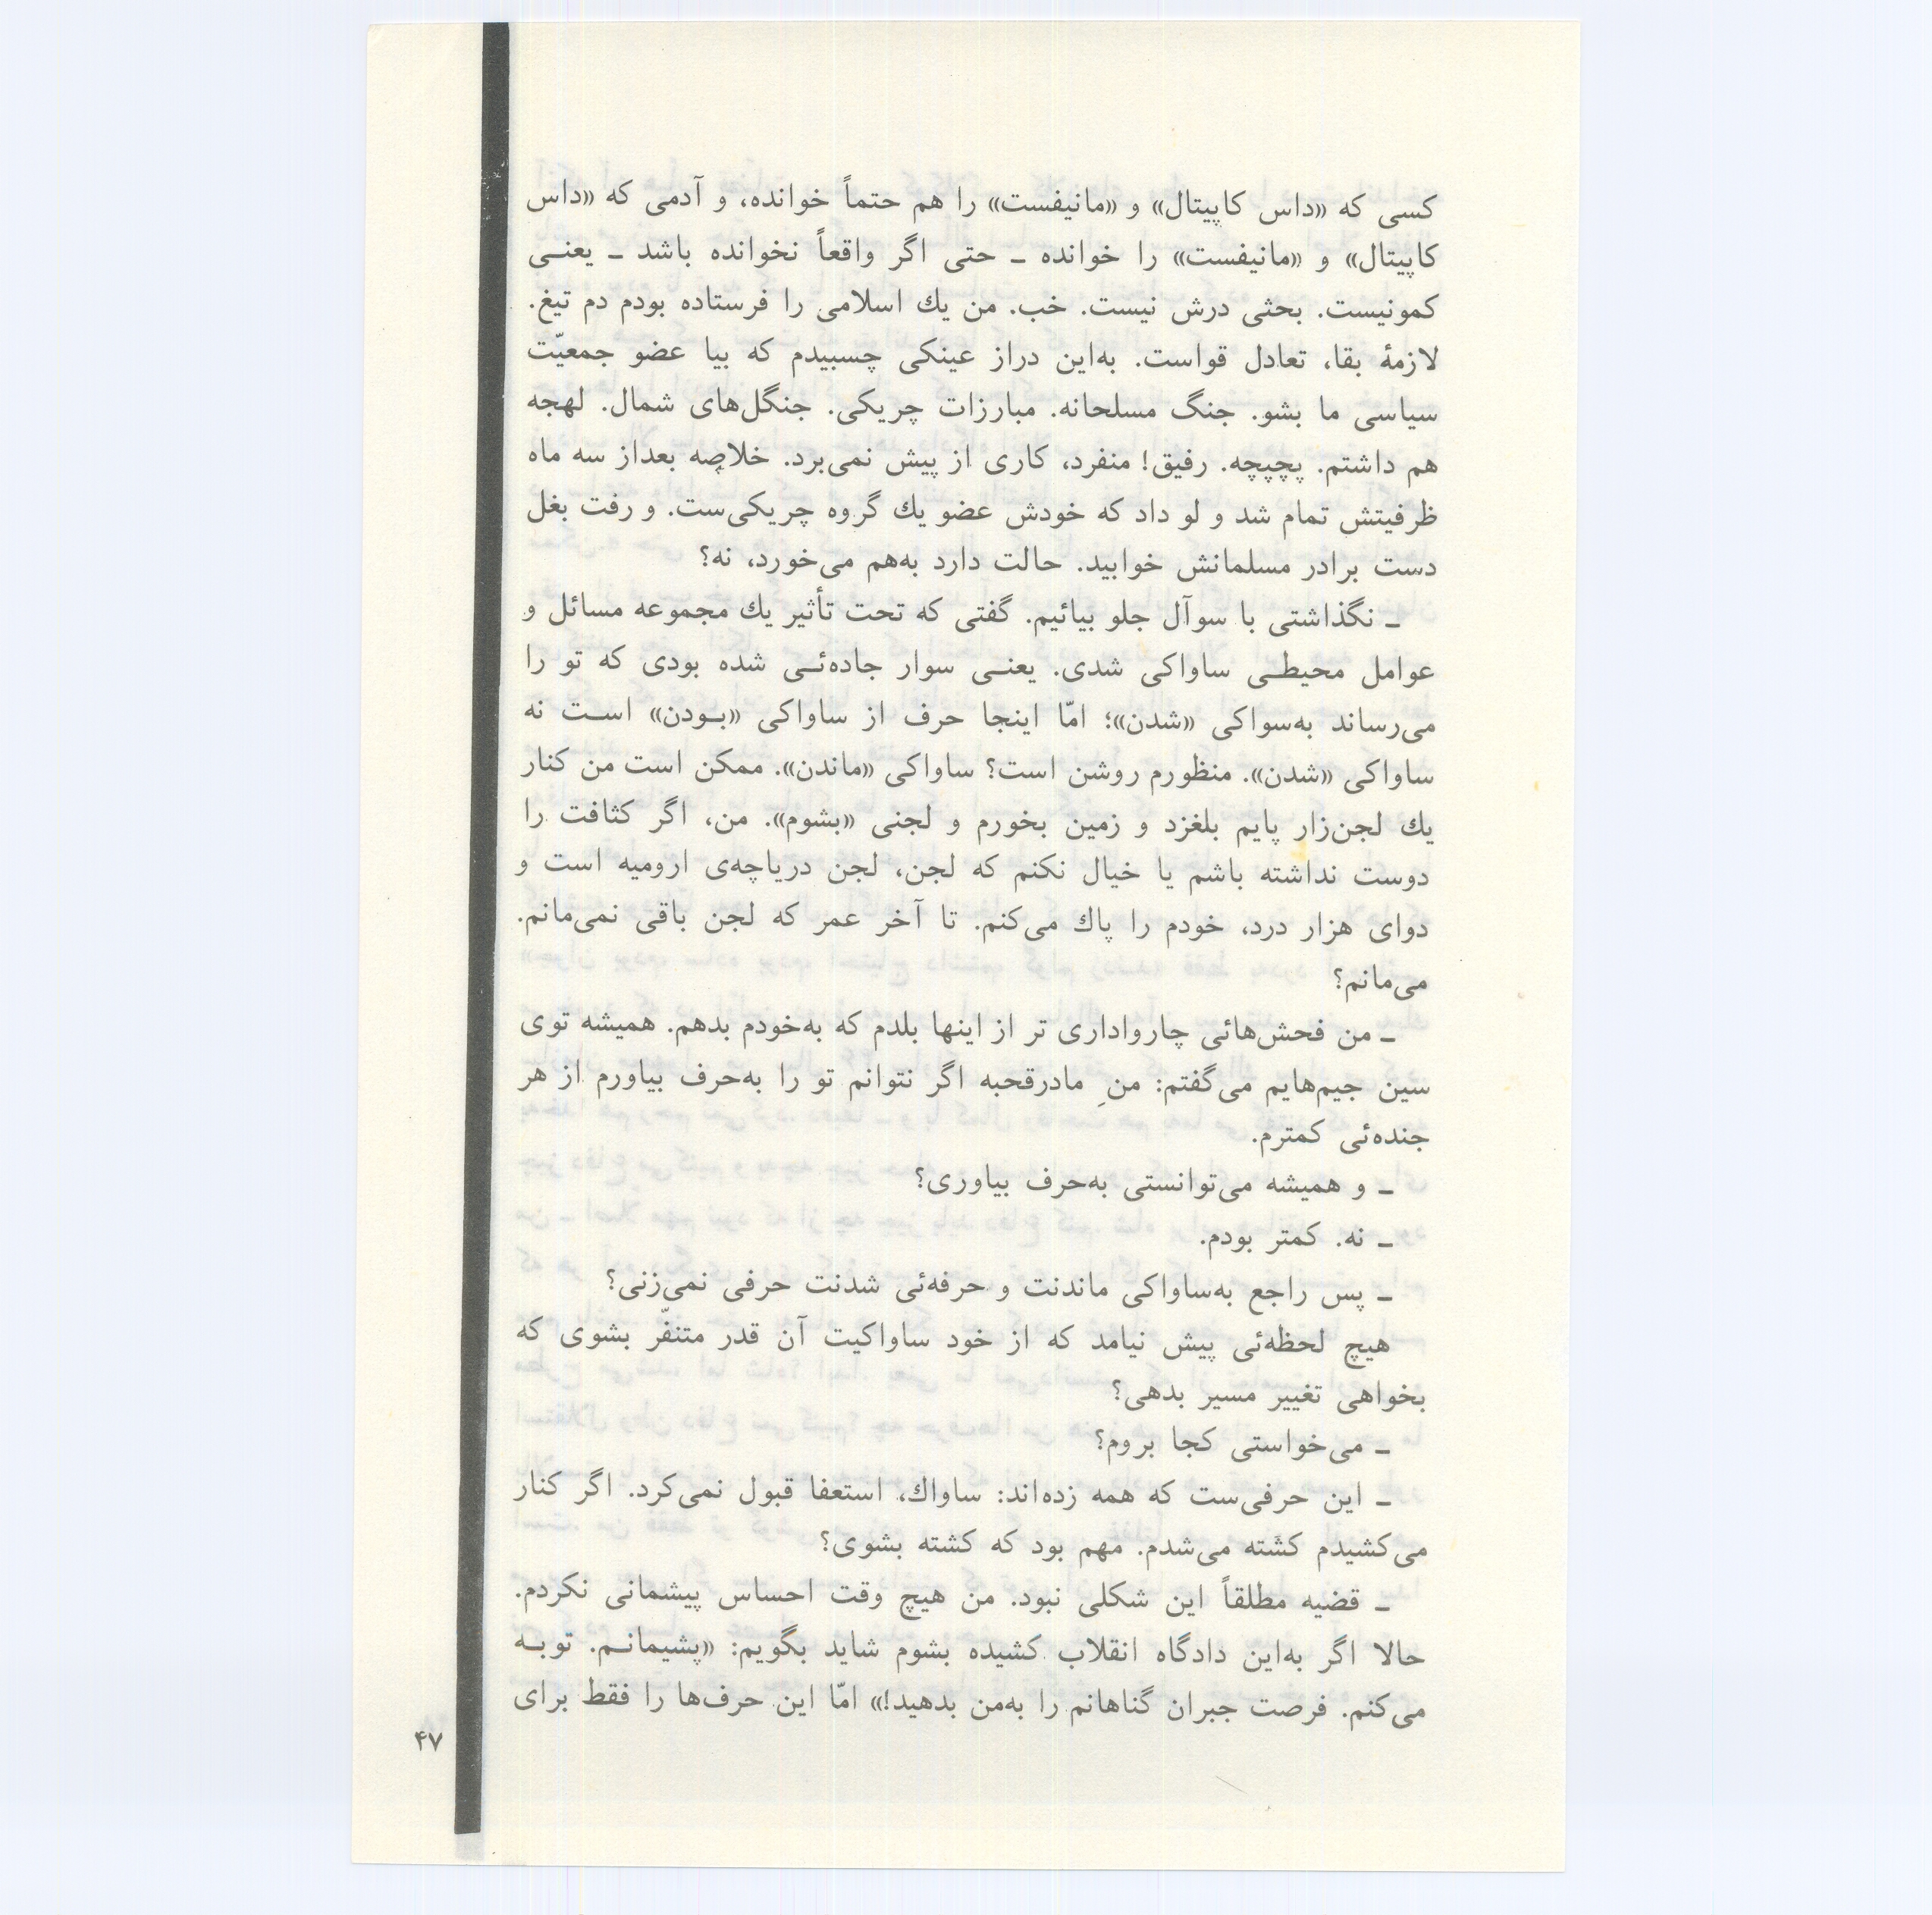 کسی که «داس کاپیتال» و «مانیفست» را هم حتماً خوانده، و آدمی که «داس
کاپیتال» و «مانیفست» را خوانده ـ حتی اگر واقعاً نخوانده باشد ـ یعنـی
کمونیست. بحثی درش نیست. خب. من یك اسلامی را فرستاده بودم دم تیغ.
لازمهٔ بقا، تعادل قواست. به‌این دراز عینکی چسبیدم که بیا عضو جمعیّت
سیاسی ما بشو. جنگ مسلحانه. مبارزات چریکی. جنگل‌های شمال. لهجه
هم داشتم. پچپچه. رفیق! منفرد، کاری از پیش نمی‌برد. خلاصه بعداز سه ماه
ظرفیتش تمام شد و لو داد که خودش عضو یك گروه چریکی‌ست. و رفت بغل
دست برادر مسلمانش خوابید. حالت دارد به‌هم می‌خورد، نه؟
ـ نگذاشتی با سوآل جلو بیائیم. گفتی که تحت تأثیر یك مجموعه مسائل و
عوامل محیطـی ساواکی شدی. یعنـی سوار جاده‌ئـی شده بودی که تو را
می‌رساند به‌سواکی «شدن»؛ امّا اینجا حرف از ساواکی «بـودن» اسـت نه
ساواکی «شدن». منظورم روشن است؟ ساواکی «ماندن». ممکن است من کنار
یك لجن‌زار پایم بلغزد و زمین بخورم و لجنی «بشوم». من، اگر کثافت را
دوست نداشته باشم یا خیال نکنم که لجن، لجن دریاچه‌ی ارومیه است و
دوای هزار درد، خودم را پاك می‌کنم. تا آخر عمر که لجن باقی نمی‌مانم.
می‌مانم؟
ـ من فحش‌هائی چارواداری تر از اینها بلدم که به‌خودم بدهم. همیشه توی
سین جیم‌هایم می‌گفتم: منِ مادرقحبه اگر نتوانم تو را به‌حرف بیاورم از هر
جنده‌ئی کمترم.
ـ و همیشه می‌توانستی به‌حرف بیاوری؟
ـ نه. کمتر بودم.
ـ پس راجع به‌ساواکی ماندنت و حرفه‌ئی شدنت حرفی نمی‌زنی؟
هیچ لحظه‌ئی پیش نیامد که از خود ساواکیت آن قدر متنفّر بشوی که
بخواهی تغییر مسیر بدهی؟
ـ می‌خواستی کجا بروم؟
ـ این حرفی‌ست که همه زده‌اند: ساواك، استعفا قبول نمی‌کرد. اگر کنار
می‌کشیدم کشته می‌شدم. مهم بود که کشته بشوی؟
ـ قضیه مطلقاً این شکلی نبود. من هیچ وقت احساس پیشمانی نکردم.
حالا اگر به‌این دادگاه انقلاب کشیده بشوم شاید بگویم: «پشیمانـم. توبـه
می‌کنم. فرصت جبران گناهانم را به‌من بدهید!» امّا این حرف‌ها را فقط برای
۴۷